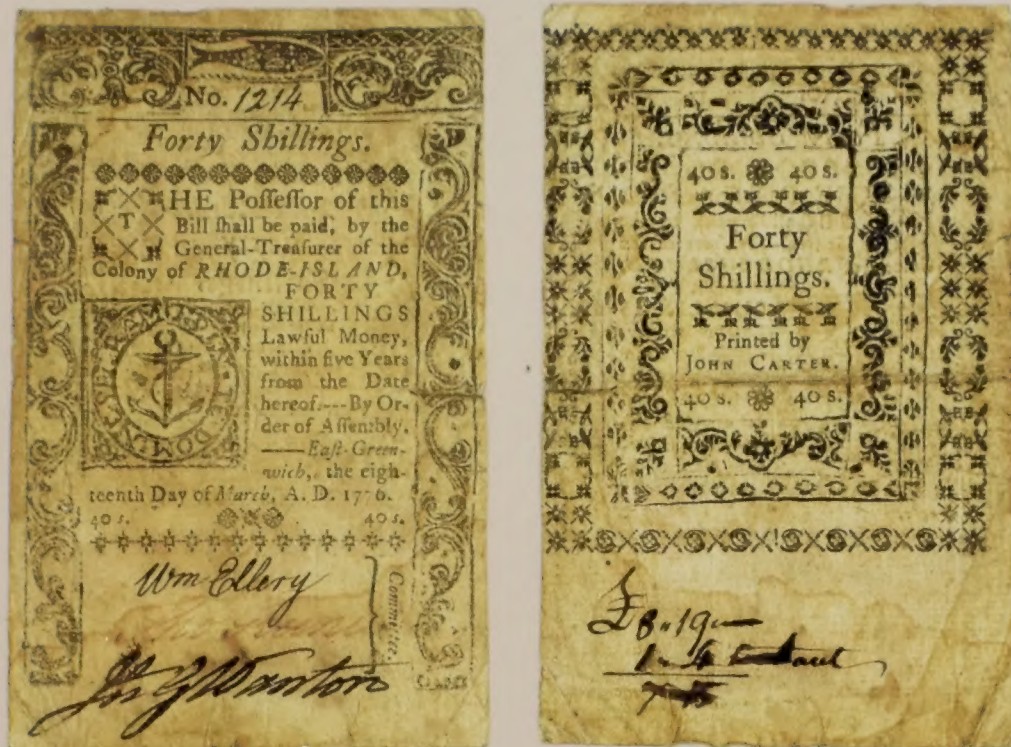 No. 1214
Forty Shillings.
THE Poſſeſſor of this
Bill ſhall be paid, by the
General-Treaſurer of the
Colony of RHODE-ISLAND,
FORTY
SHILLINGS
Lawful Money,
within five Years
from the Date
hereof.---By Or-
der of Aſſembly.
——Eaſt-Green-
wich, the eigh-
teenth Day of March, A. D. 1776.
40 s. 40 s.
Wm Ellery
Committee.
Jn G Wanton
40 s. 40 s.
Forty
Shillings.
Printed by
JOHN CARTER.
40 s. 40 s.
£8"19